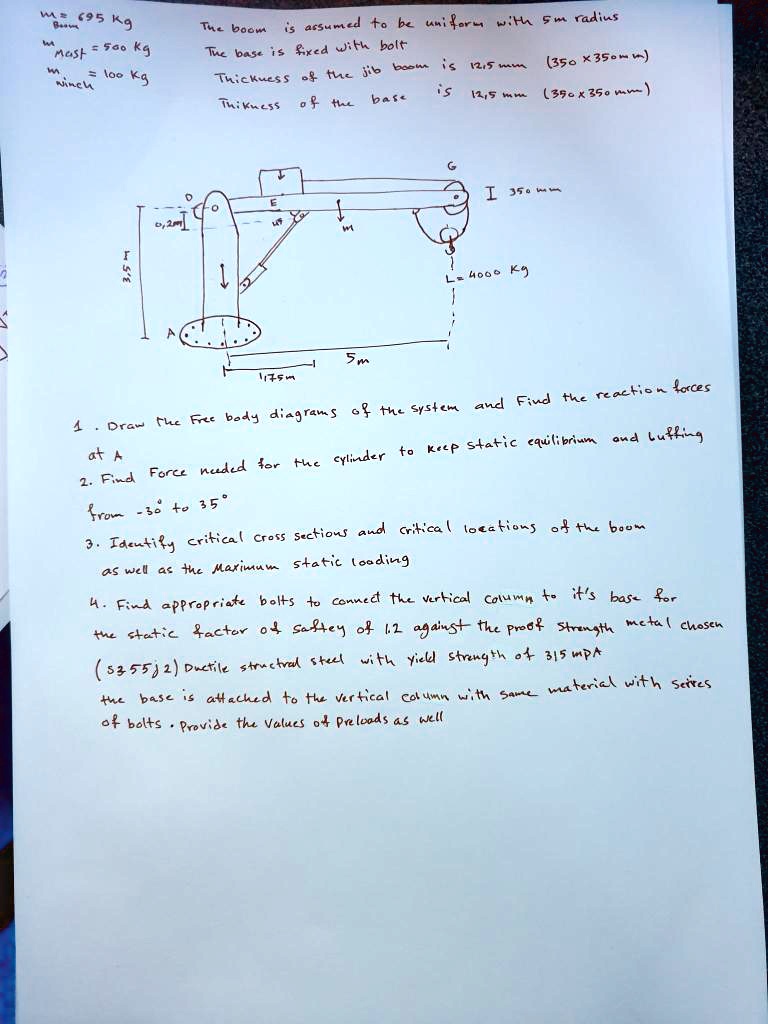 m = 695 Kg
Boom
m = 500 Kg
Mast
m = 100 Kg
winch
The boom is assumed to be uniform with 5m radius
The base is fixed with bolt
Thickness of the jib boom is 12,5 mm (350 x 350 mm)
Thikness of the base is 12,5 mm (350 x 350 mm)
G
D
O
E
I 350 mm
0,2m
45°
m
3,5 m
L = 4000 Kg
A
5m
1,75m
1. Draw the Free body diagrams of the system and Find the reaction forces
at A
2. Find Force needed for the cylinder to keep static equilibrium and luffing
from -30° to 35°
3. Identify critical cross sections and critical locations of the boom
as well as the Maximum static loading
4. Find appropriate bolts to connect the vertical column to it's base for
the static factor of saftey of 1.2 against the proof strength metal chosen
(S355j2) Ductile structral steel with yield strength of 315 MPA
the base is attached to the vertical column with same material with seires
of bolts. Provide the values of Preloads as well